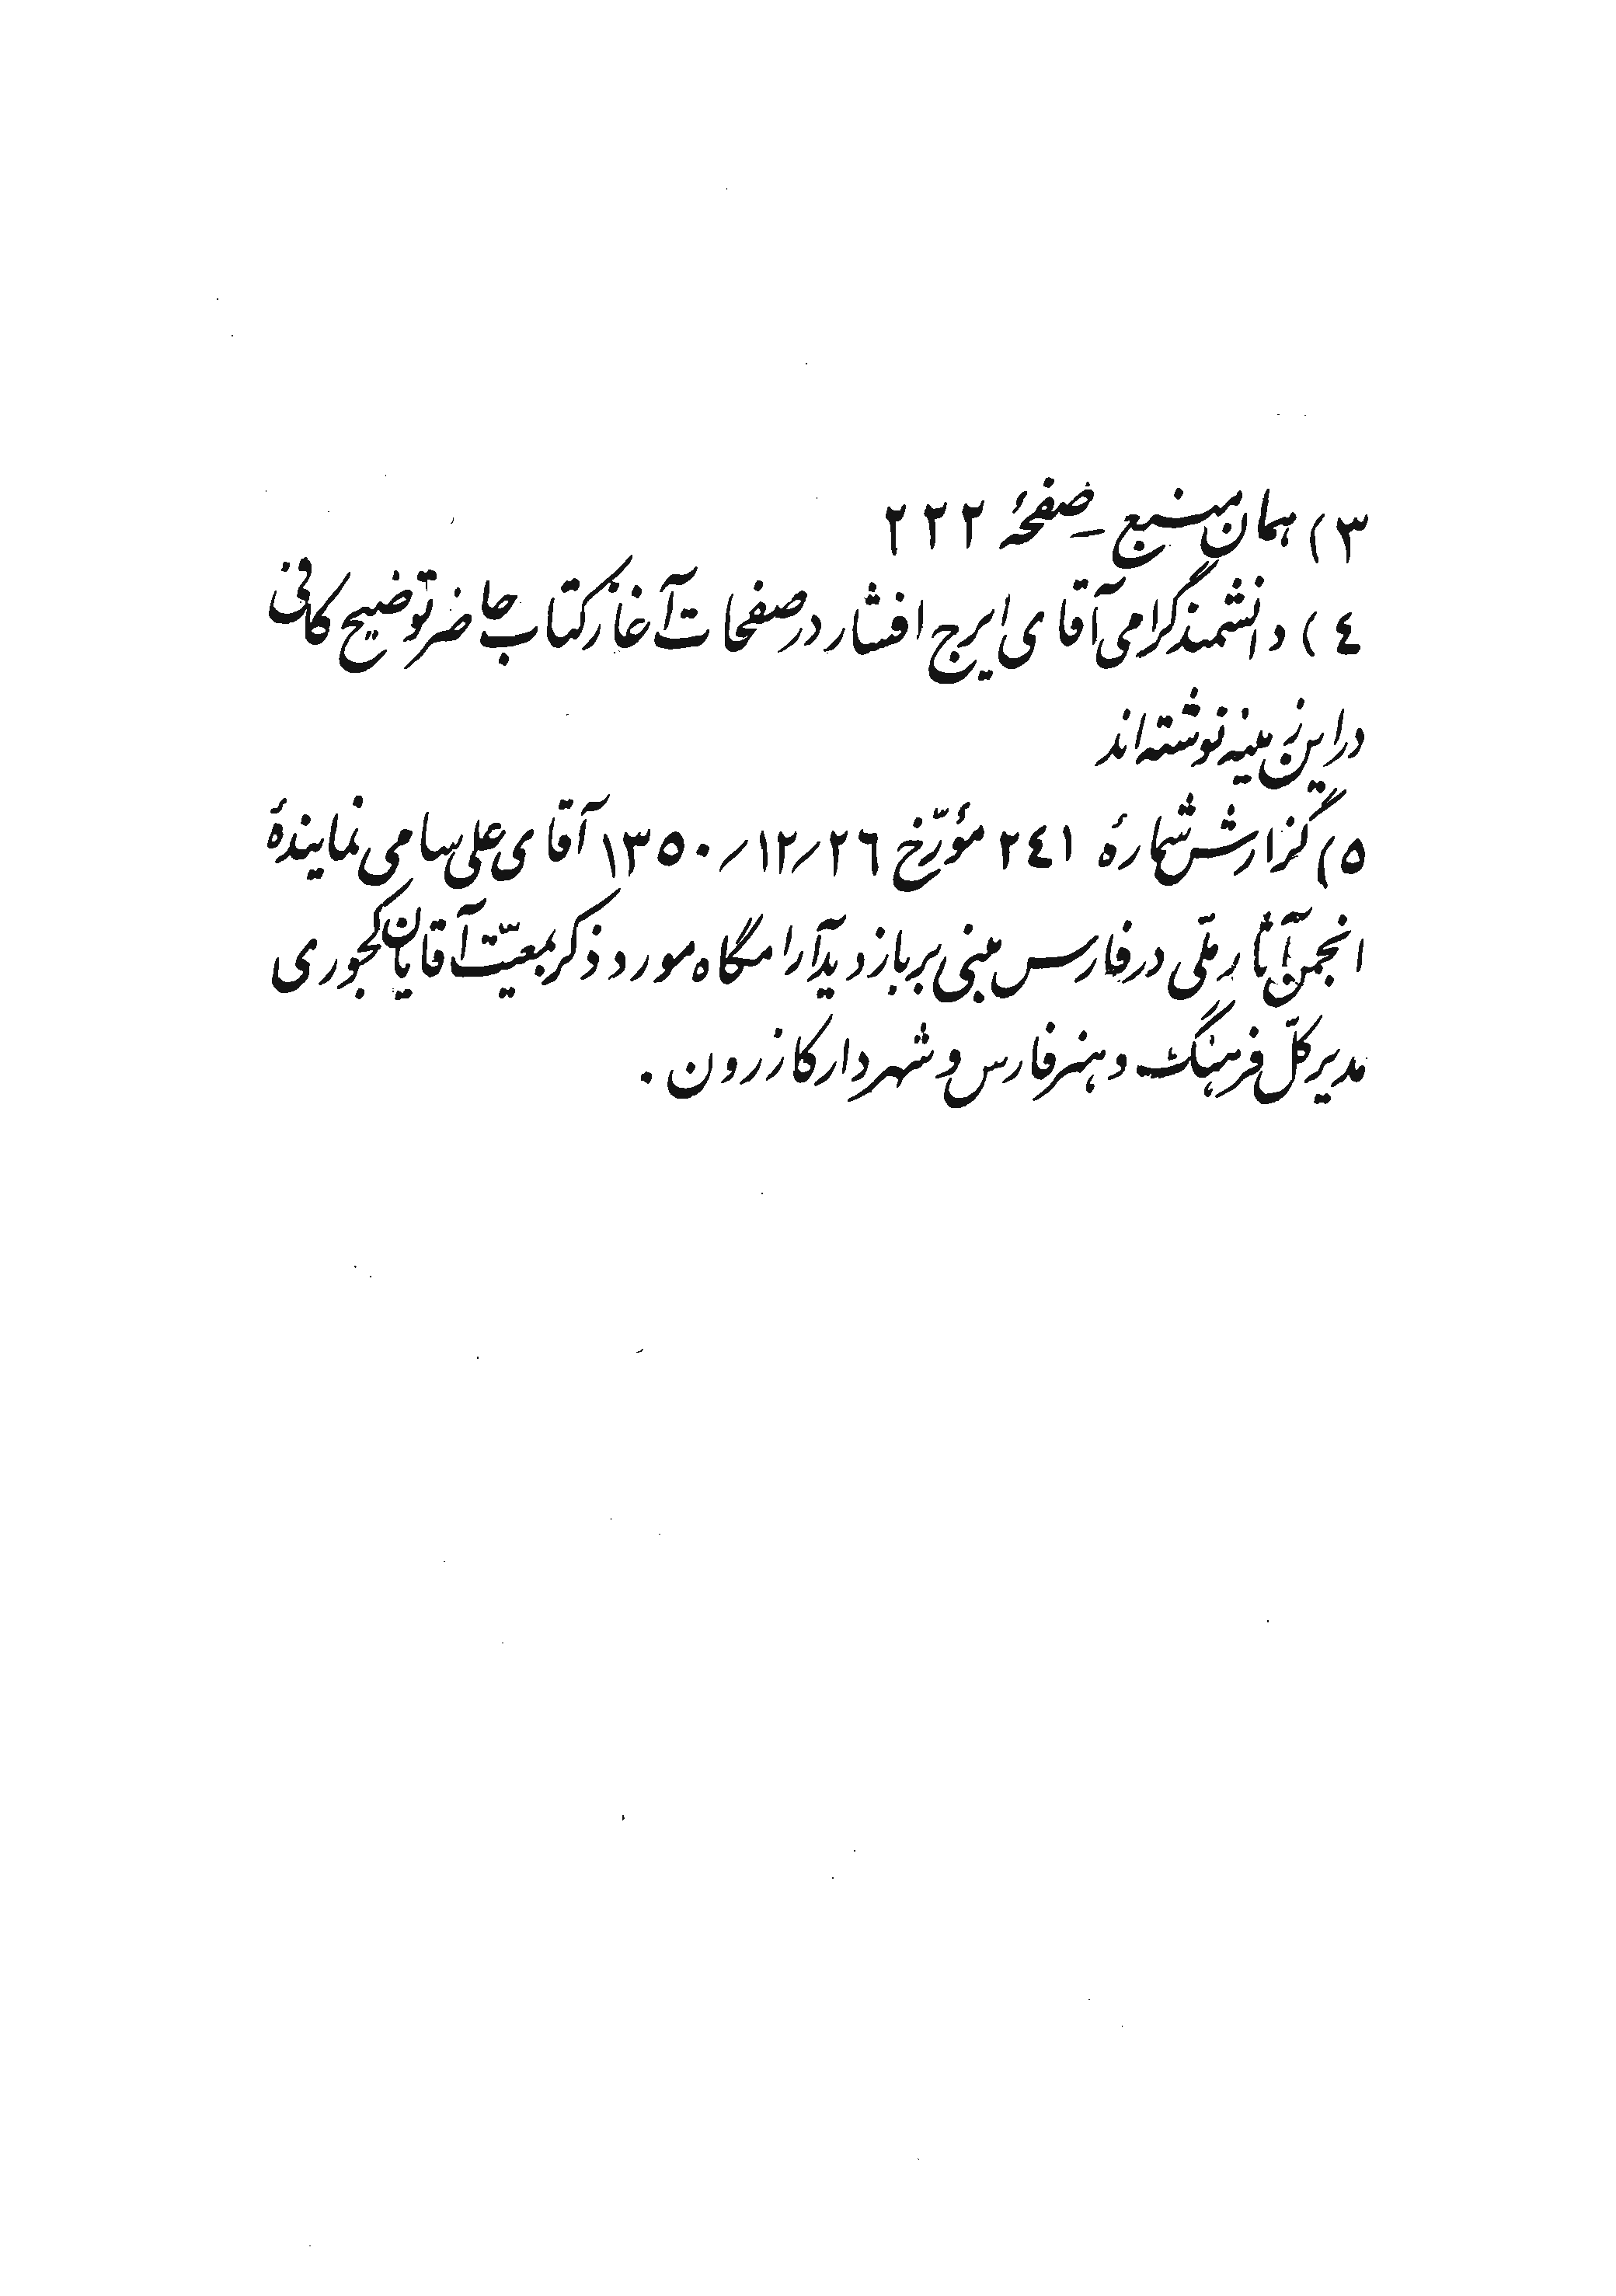 ٣) همان منبع ـ صفحۀ ٢٢٢
٤) دانشمند گرامی آقای ایرج افشار در صفحات آغاز کتاب حاضر توضیح کافی
در این زمینه نوشته‌اند
٥) گزارش شمارۀ ٢٤١ مؤرّخ ٢٦/١٢/١٣٥٠ آقای علی سامی نمایندۀ
انجمن آثار ملّی در فارس مبنی بر بازدید آرامگاه مورد ذکر بمعیّت آقایان کجوری
مدیر کلّ فرهنگ و هنر فارس و شهردار کازرون .